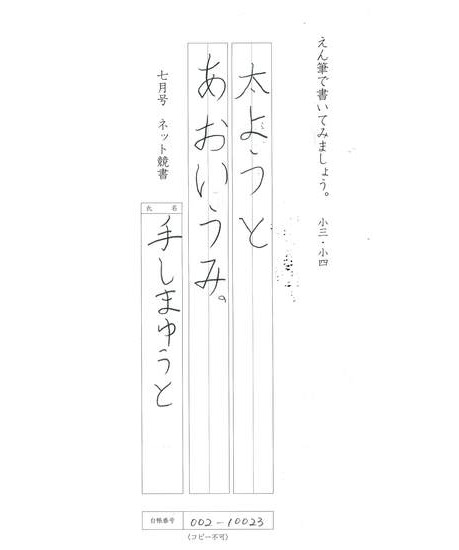 えん筆で書いてみましょう。 小三・小四
太ようと
あおいうみ。
七月号 ネット競書
氏名
手しまゆうと
台帳番号 002-10023
〈コピー不可〉